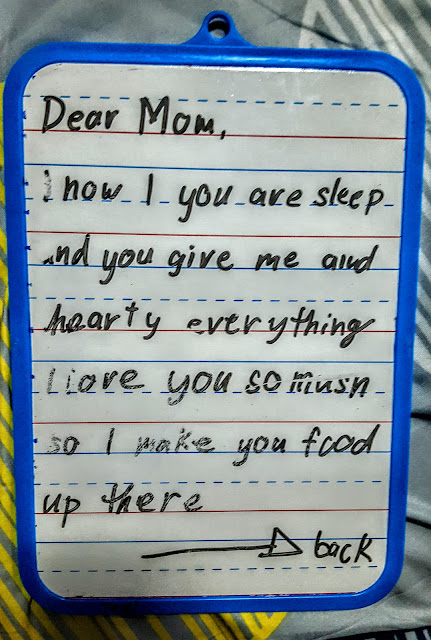 Dear Mom,
I now I you are sleep
and you give me and
hearty everything
I love you so musn
so I make you food
up there
back